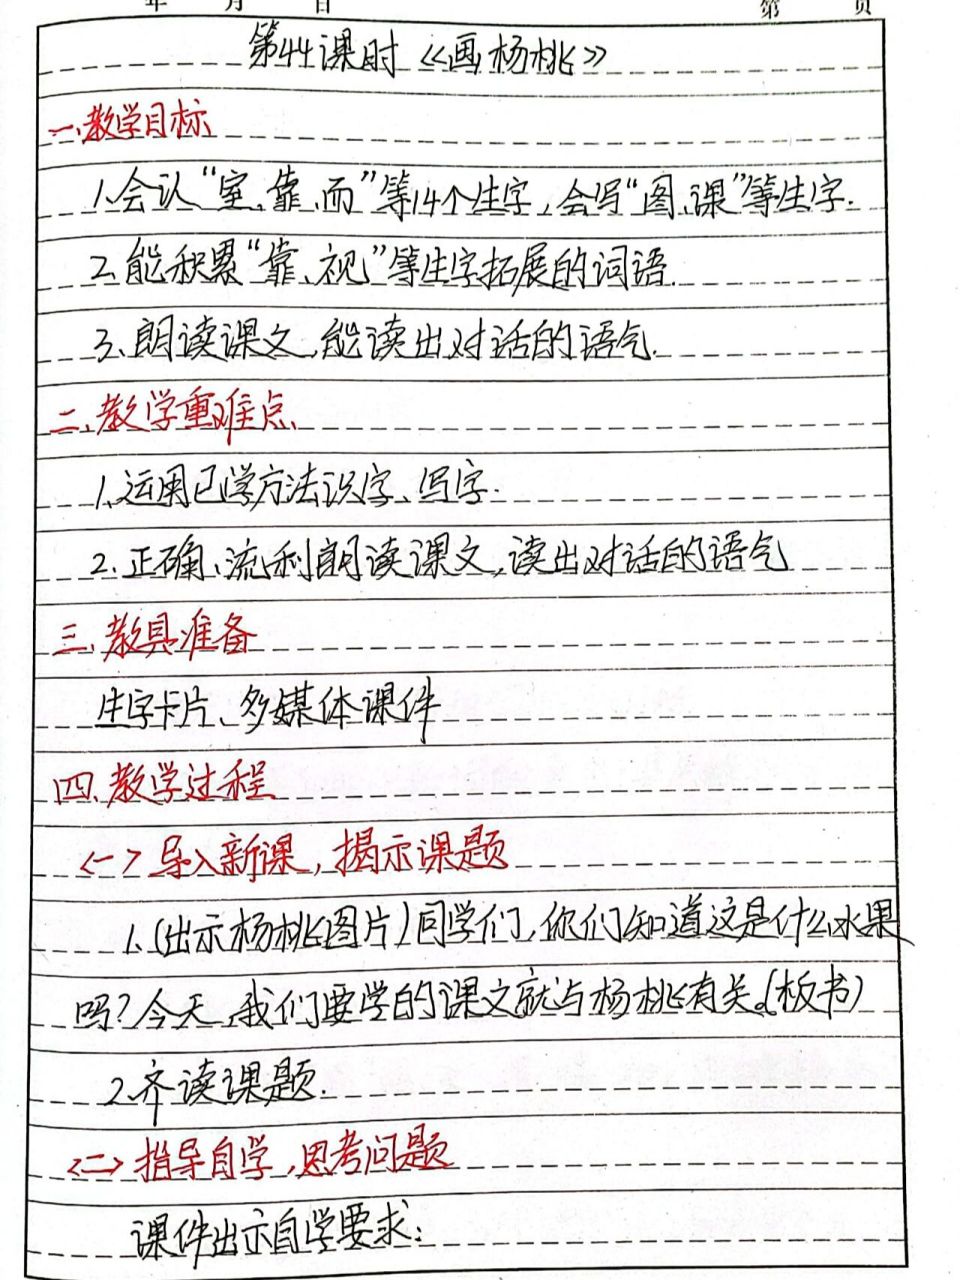 年 月 日 第 页
第44课时《画杨桃》
一、教学目标
1.会认“室、靠、而”等14个生字,会写“图、课”等生字.
2.能积累“靠、视”等生字拓展的词语.
3、朗读课文,能读出对话的语气.
二、教学重难点
1.运用已学方法识字、写字.
2.正确、流利朗读课文,读出对话的语气
三、教具准备
生字卡片、多媒体课件
四、教学过程
<一>导入新课,揭示课题
1.(出示杨桃图片)同学们,你们知道这是什么水果
吗?今天,我们要学的课文就与杨桃有关。(板书)
2.齐读课题.
<二>指导自学,思考问题
课件出示自学要求: